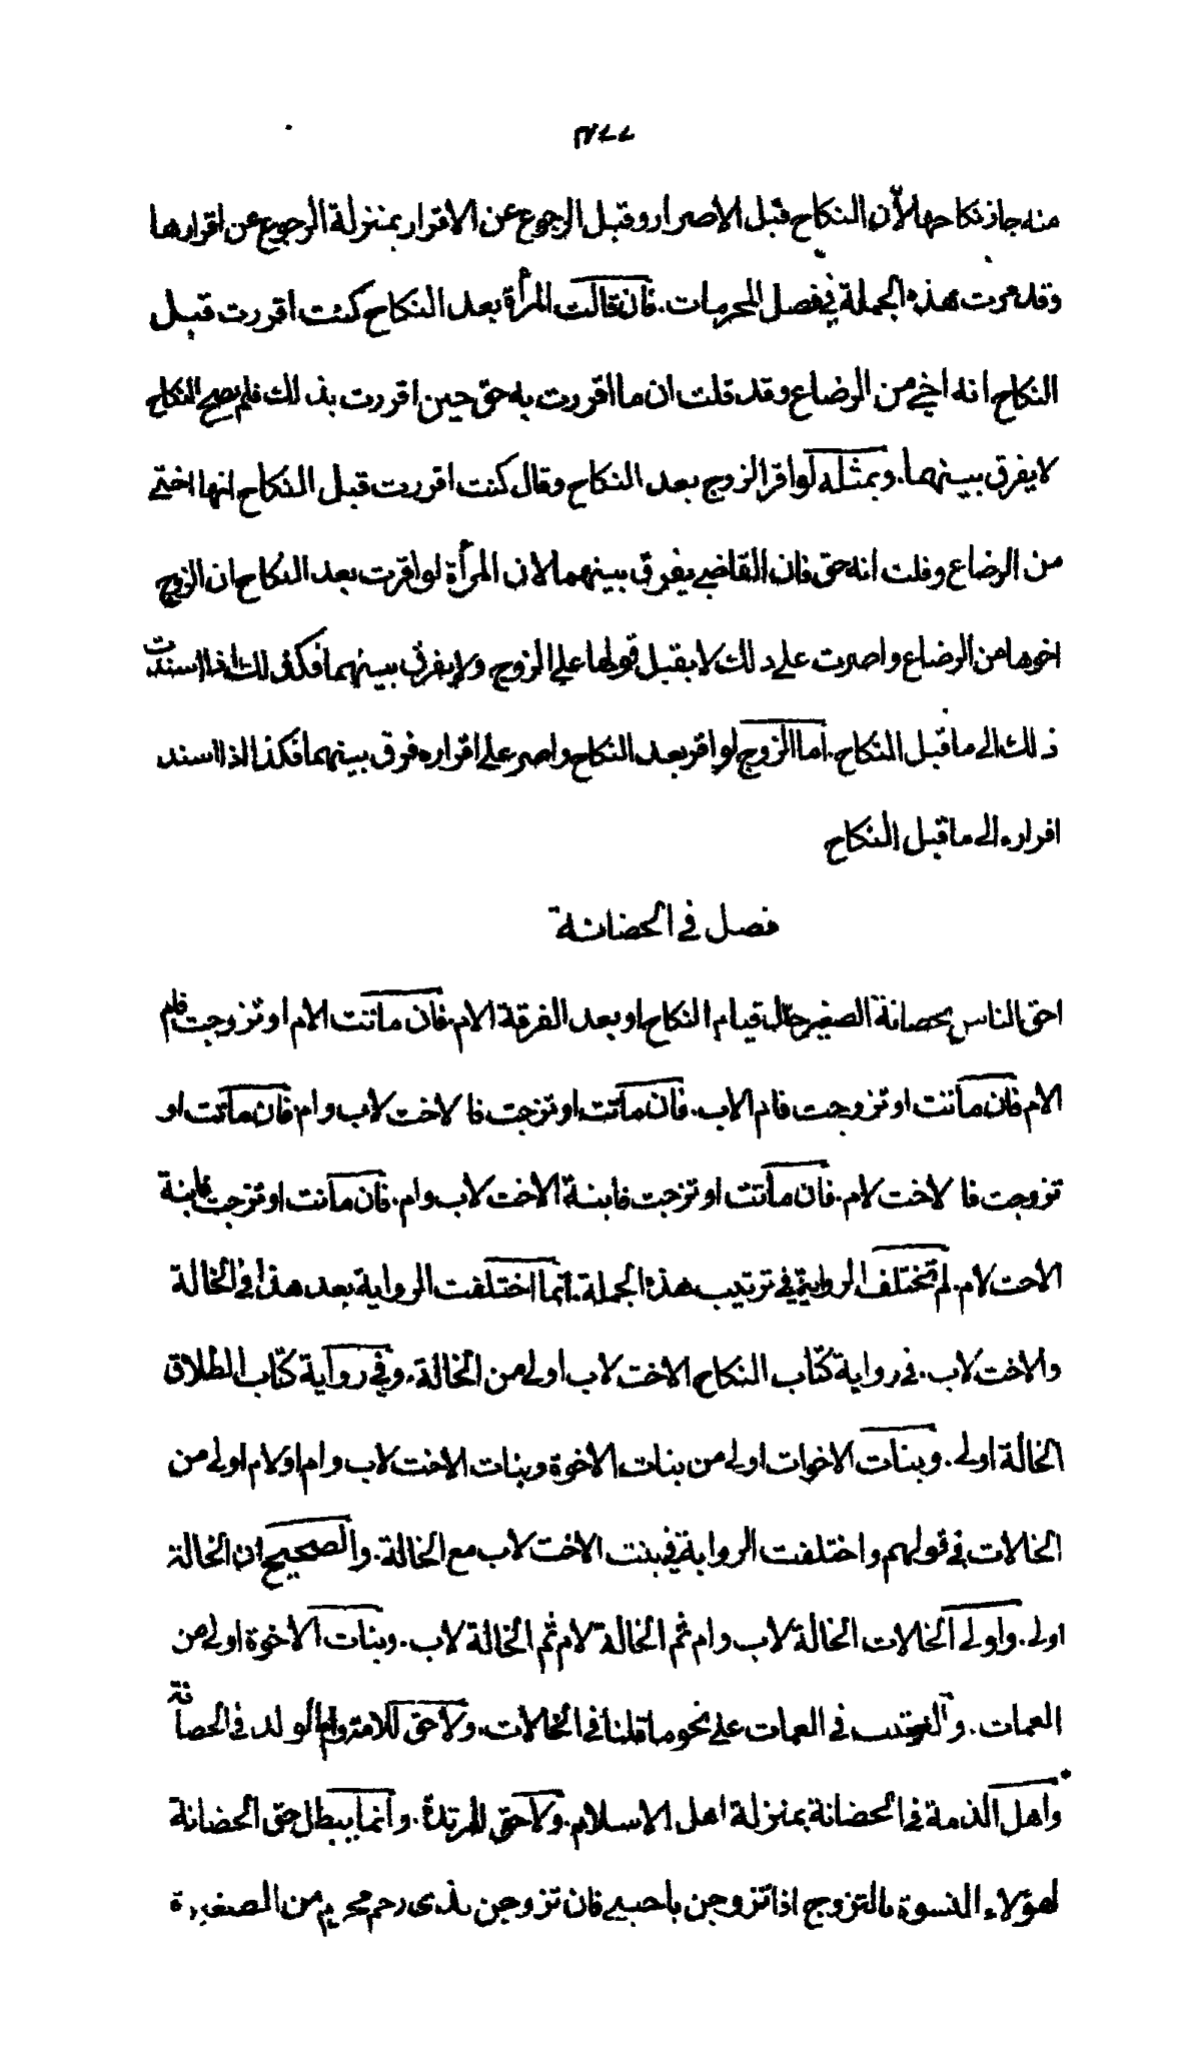 ٣٧٧
منه جاز نكاحها لأن النكاح قبل الاصرار وقبل الرجوع عن الاقرار بمنزلة الرجوع عن اقرارها
وقد مرت هذه الجملة في فصل المحرمات. فان قالت المرأة بعد النكاح كنت اقررت قبل
النكاح انه اخي من الرضاع وقد قلت ان ما اقررت به حق حين اقررت بذلك فلم يصح النكاح
لا يفرق بينهما. وبمثله لو اقر الزوج بعد النكاح وقال كنت اقررت قبل النكاح انها اختي
من الرضاع وقلت انه حق فان القاضي يفرق بينهما لان المرأة لو اقرت بعد النكاح ان الزوج
اخوها من الرضاع واصرت على ذلك لا يقبل قولها على الزوج ولا يفرق بينهما فكذلك اذا اسندت
ذلك الى ما قبل النكاح. اما الزوج لو اقر بعد النكاح واصر على اقراره فرق بينهما فكذا اذا اسند
اقراره الى ما قبل النكاح
فصل في الحضانة
احق الناس بحضانة الصغير حال قيام النكاح او بعد الفرقة الام. فان ماتت الام او تزوجت فام
الام فان ماتت او تزوجت فام الاب. فان ماتت او تزجت فالاخت لاب وام فان ماتت او
تزوجت فالاخت لام. فان ماتت او تزجت فابنة الاخت لاب وام. فان ماتت او تزجت فابنة
الاخت لام. لم تختلف الرواية في ترتيب هذه الجملة. انما اختلفت الرواية بعد هذا في الخالة
والاخت لاب. في رواية كتاب النكاح الاخت لاب اولى من الخالة. وفي رواية كتاب الطلاق
الخالة اولى. وبنات الاخوات اولى من بنات الاخوة وبنات الاخت لاب وام او لام اولى من
الخالات في قولهم واختلفت الرواية في بنت الاخت لاب مع الخالة. والصحيح ان الخالة
اولى. واولى الخالات الخالة لاب وام ثم الخالة لام ثم الخالة لاب. وبنات الاخوة اولى من
العمات. والترتيب في العمات على نحو ما قلنا في الخالات. ولا حق للامة وام الولد في الحضانة
واهل الذمة في الحضانة بمنزلة اهل الاسلام. ولا حق للمرتدة. وانما يبطل حق الحضانة
لهؤلاء النسوة بالتزوج اذا تزوجن باجنبي فان تزوجن بذي رحم محرم من الصغيرة